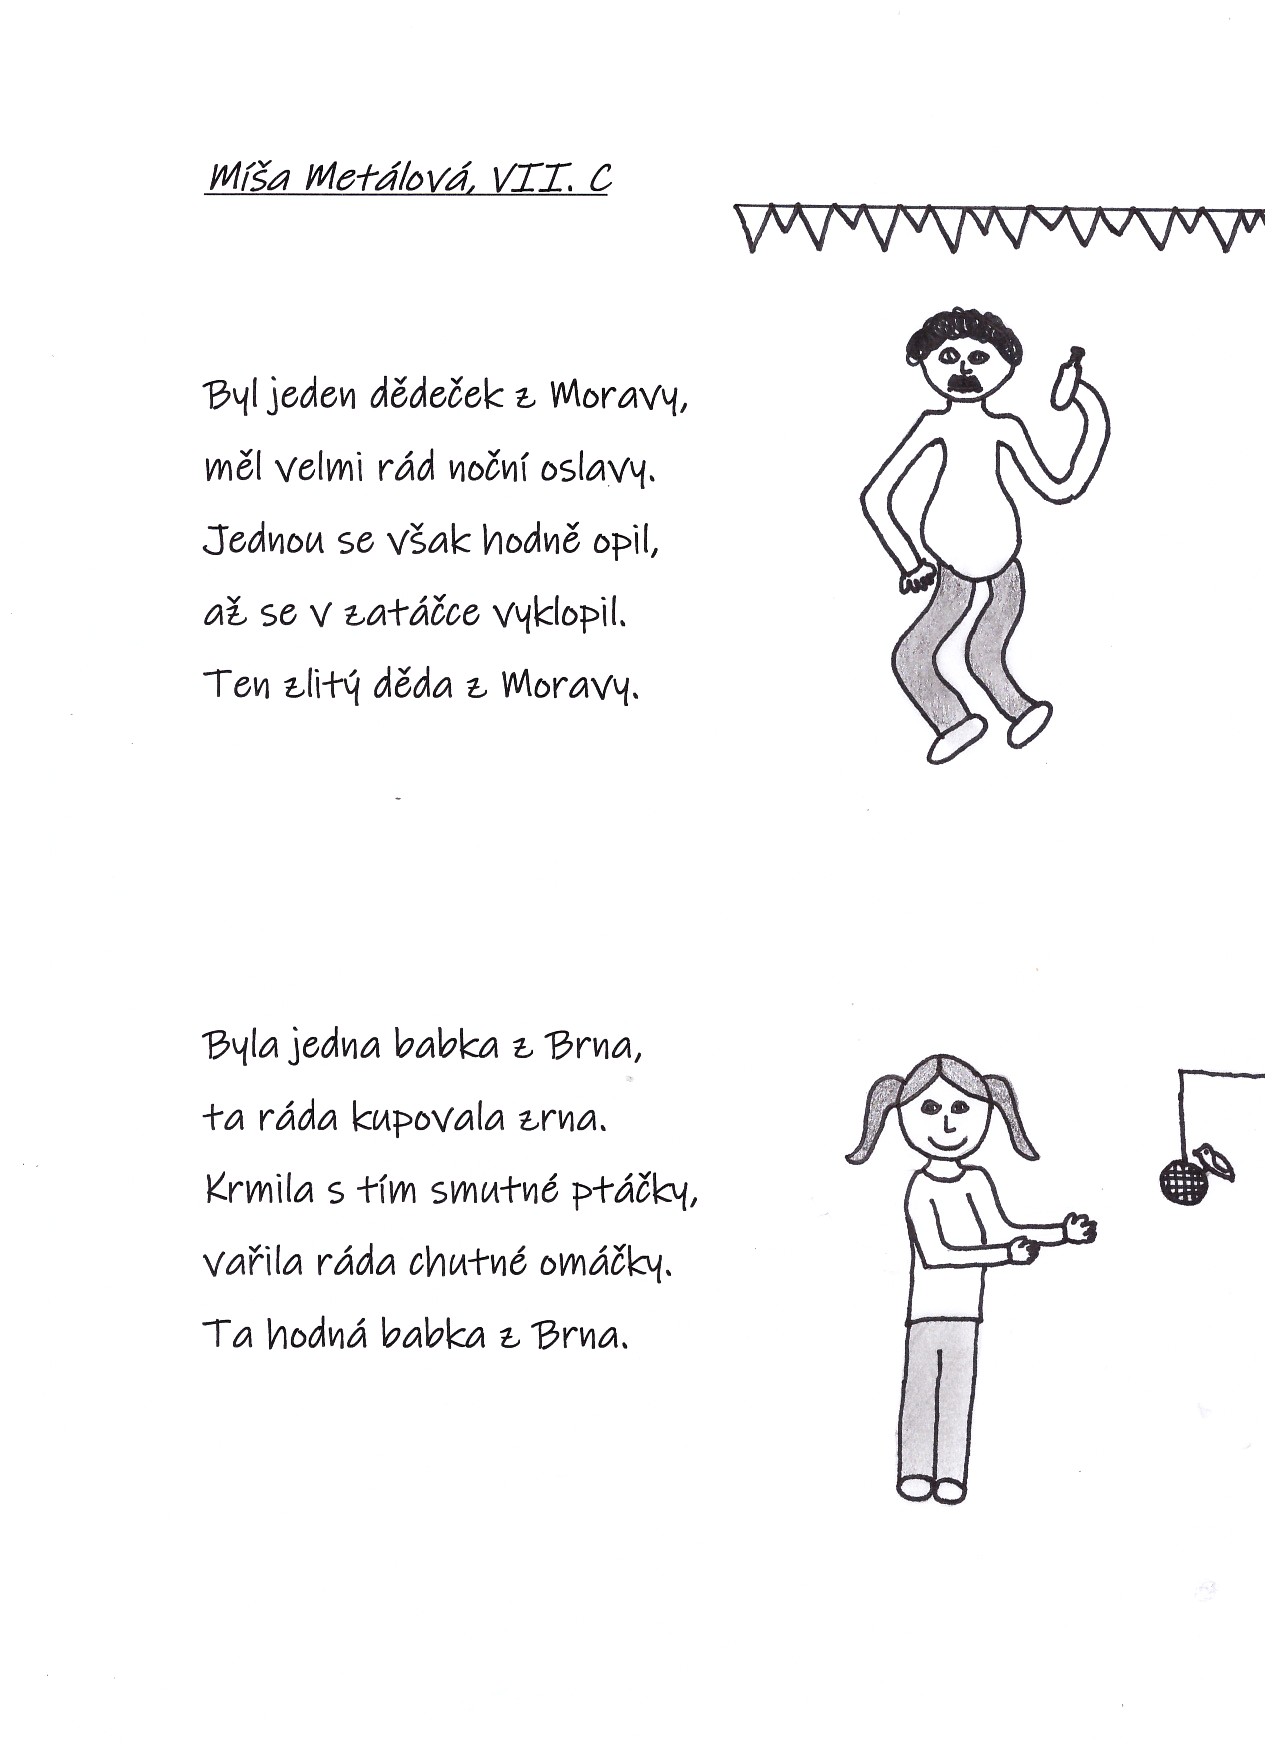 Míša Metálová, VII. C
Byl jeden dědeček z Moravy,
měl velmi rád noční oslavy.
Jednou se však hodně opil,
až se v zatáčce vyklopil.
Ten zlitý děda z Moravy.
Byla jedna babka z Brna,
ta ráda kupovala zrna.
Krmila s tím smutné ptáčky,
vařila ráda chutné omáčky.
Ta hodná babka z Brna.